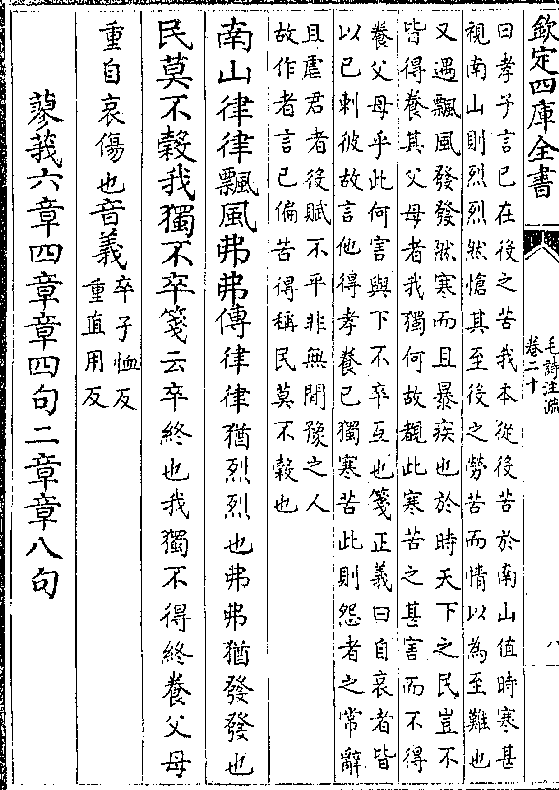 欽定四庫全書
毛詩注疏
卷二十
八
曰孝子言已在後之苦我本從後苦於南山值時寒甚
視南山則烈烈然愴其至後之勞苦而情以為至難也
又遇飄風發發然寒而且暴疾也於時天下之民豈不
皆得養其父母者我獨何故覩此寒苦之甚害而不得
養父母乎此何害與下不卒互也箋正義曰自哀者皆
以已刺彼故言他得孝養已獨寒苦此則怨者之常辭
且虐君者後賦不平非無閒豫之人
故作者言已偏苦得稱民莫不穀也
南山律律飄風弗弗傳律律猶烈烈也弗弗猶發發也
民莫不穀我獨不卒箋云卒終也我獨不得終養父母
重自哀傷也音義
卒子恤反
重直用反
蓼莪六章四章章四句二章章八句